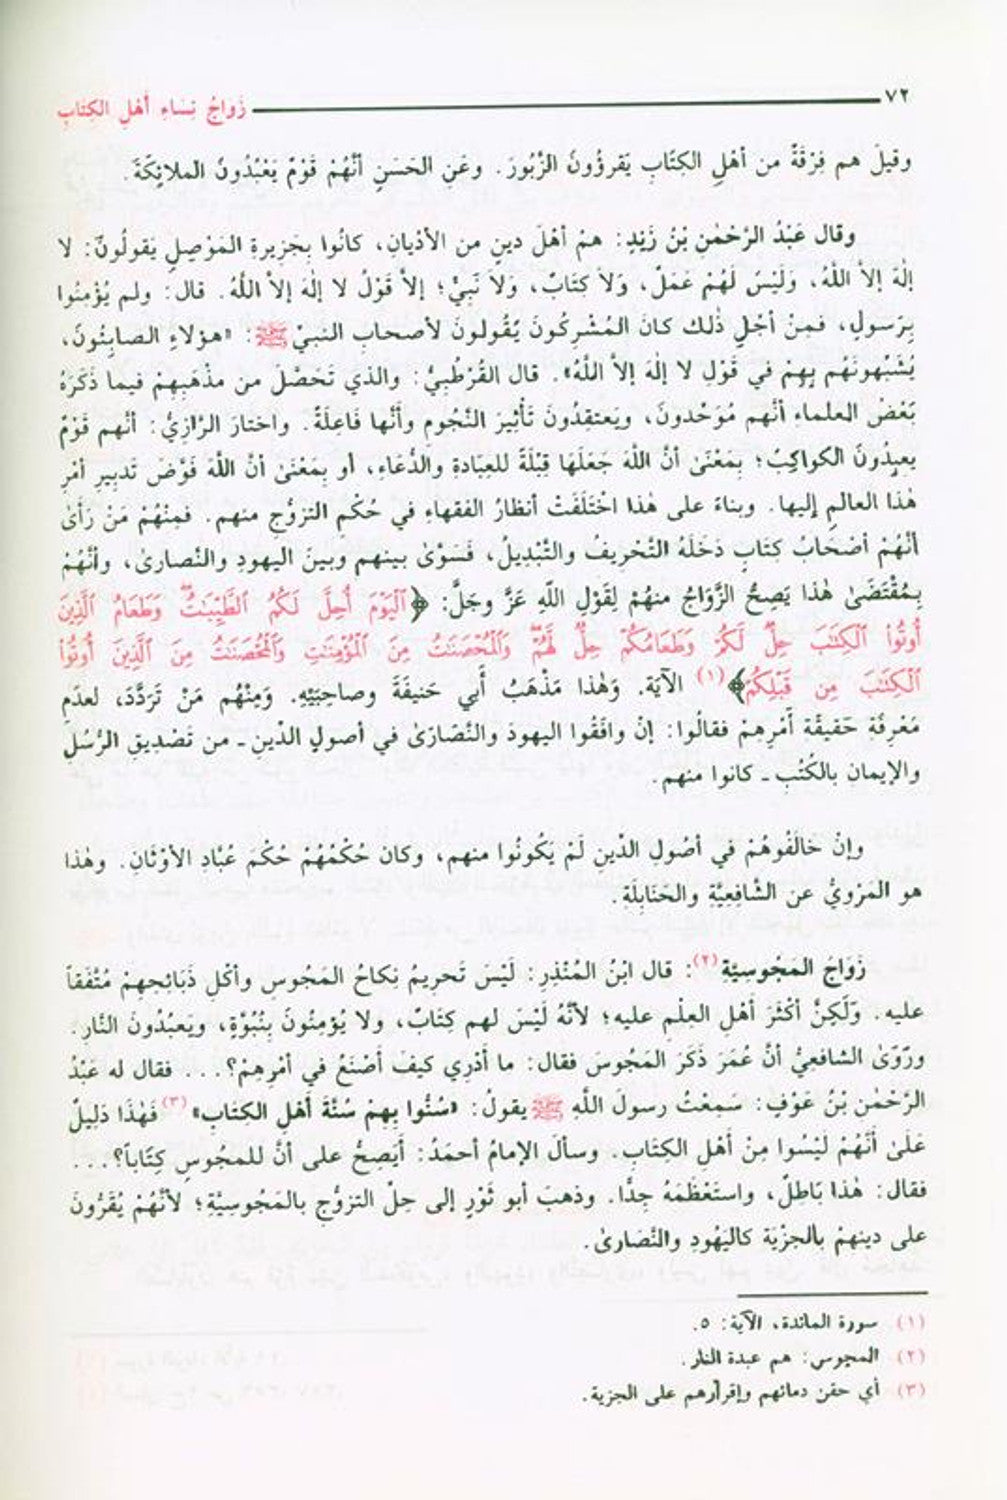 ٧٢ زَواجُ نِسَاءِ أَهْلِ الكِتَابِ
وقيلَ هم فِرْقَةٌ من أهْلِ الكِتَابِ يَقرؤونَ الزَّبُورَ. وعَنِ الحَسَنِ أنَّهُمْ قَوْمٌ يَعْبُدُونَ الملائِكَةَ.
وقال عَبْدُ الرَّحْمٰنِ بْنُ زَيْدٍ: همْ أهْلَ دينٍ من الأدْيانِ، كانُوا بِجَزِيرةِ المَوْصِلِ يَقولُونَ: لا
إلٰهَ إلاَّ اللَّهُ، وَلَيْسَ لَهُمْ عَمَلٌ، وَلاَ كِتَابٌ، وَلاَ نَبِيٌّ؛ إلاَّ قَوْلُ لا إلٰهَ إلاَّ اللَّهُ. قال: ولم يُؤْمِنُوا
بِرَسولٍ، فمِنْ أجْلِ ذٰلك كانَ المُشْرِكُونَ يُقُولونَ لأصحابِ النبيِّ ﷺ: «هؤلاءِ الصابِئُونَ،
يُشَبِّهونَهُم بِهِمْ في قَوْلِ لا إلٰهَ إلاَّ اللَّهُ». قال القُرْطُبِيُّ: والذي تَحَصَّلَ من مذْهَبِهِمْ فيما ذَكَرَهُ
بَعْضُ العلماءِ أنَّهم مُوَحِّدونَ، ويَعتقِدُونَ تَأْثِيرَ النُّجُومِ وأَنَّها فَاعِلَةٌ. واختارَ الرَّازِيُّ: أنَّهم قَوْمٌ
يعبِدُونَ الكواكِبَ؛ بِمَعْنَىٰ أنَّ اللَّهَ جَعَلَهَا قِبْلَةً للعِبَادةِ والدُّعَاءِ، أو بِمَعْنَىٰ أنَّ اللَّهَ فَوَّضَ تَدبِيرَ أمْرِ
هٰذا العالمِ إليها. وبناءً على هٰذا اخْتَلَفَتْ أنظارُ الفقهاءِ في حُكْمِ التزوُّجِ منهم. فمِنْهُمْ مَنْ رَأىٰ
أنَّهُمْ أصْحَابُ كِتَابٍ دَخَلَهُ التَّحْرِيفُ والتَّبْدِيلُ، فَسَوَّىٰ بينهم وبينَ اليهودِ والنَّصارىٰ، وأنَّهُمْ
بِمُقْتَضَىٰ هٰذا يَصِحُّ الزَّوَاجُ منهُمْ لِقَولِ اللَّهِ عَزَّ وجَلَّ: ﴿ٱلْيَوْمَ أُحِلَّ لَكُمُ ٱلطَّيِّبَـٰتُ وَطَعَامُ ٱلَّذِينَ
أُوتُواْ ٱلْكِتَـٰبَ حِلٌّ لَّكُمْ وَطَعَامُكُمْ حِلٌّ لَّهُمْ وَٱلْمُحْصَنَـٰتُ مِنَ ٱلْمُؤْمِنَـٰتِ وَٱلْمُحْصَنَـٰتُ مِنَ ٱلَّذِينَ أُوتُواْ
ٱلْكِتَـٰبَ مِن قَبْلِكُمْ﴾(١) الآيَة. وَهٰذا مَذْهَبُ أَبي حَنيفَةَ وصاحِبَيْهِ. وَمِنْهُم مَنْ تَرَدَّدَ، لعدَمِ
مَعْرِفَةِ حَقيقَةِ أَمْرِهِمْ فقالُوا: إنْ وافَقُوا اليهودَ والنَّصَارَىٰ في أصولِ الدِّينِ - من تَصْديقِ الرُّسُلِ
والإيمانِ بالكُتُبِ - كانوا منهم.
وإنْ خالَفُوهُمْ في أصُولِ الدِّينِ لَمْ يَكُونُوا منهم، وكانَ حُكْمُهُمْ حُكْمَ عُبَّادِ الأوْثَانِ. وهٰذا
هو المَرْويُّ عن الشَّافِعِيَّةِ والحَنَابِلَةِ.
زَوَاجُ المَجُوسيَّةِ(٢): قال ابْنُ المُنْذِرِ: لَيْسَ تَحرِيمُ نِكاحُ المَجُوسِ وأكْلِ ذَبَائِحِهمْ مُتَّفَقاً
عليه. وَلَكِنَّ أكْثَرَ أهْلِ العِلْمِ عليه؛ لأنَّهُ لَيْسَ لهم كِتَابٌ، ولا يُؤمِنُونَ بِنُبُوَّةٍ، ويَعبُدُونَ النَّارِ.
ورَوَىٰ الشافعِيُّ أنَّ عُمَرَ ذَكَرَ المَجُوسَ فقال: ما أَدْرِي كيفَ أَصْنَعُ في أمْرِهِمْ؟... فقال له عَبْدُ
الرَّحْمٰنِ بْنُ عَوْفٍ: سَمِعْتُ رسولَ اللَّهِ ﷺ يقولُ: «سُنُّوا بِهِمْ سُنَّةَ أهْلِ الكِتَابِ»(٣) فَهٰذا دَلِيلٌ
عَلَىٰ أنَّهُمْ لَيْسُوا مِنْ أهْلِ الكِتَابِ. وسأَلَ الإمامُ أحمَدُ: أَيَصِحُّ على أنَّ للمجُوسِ كِتَاباً؟...
فقال: هٰذا بَاطِلٌ، واستَعْظَمَهُ جِدًّا. وذهبَ أبو ثَوْرٍ إلى حِلِّ التزوُّجِ بالمَجُوسيَّةِ؛ لأنَّهُمْ يُقَرُّونَ
على دينِهمْ بالجزْيَة كاليَهُودِ والنَّصَارىٰ.
(١) سورة المائدة، الآية: ٥.
(٢) المجوس: هم عبدة النار.
(٣) أي حقن دمائهم وإقرارهم على الجزية.